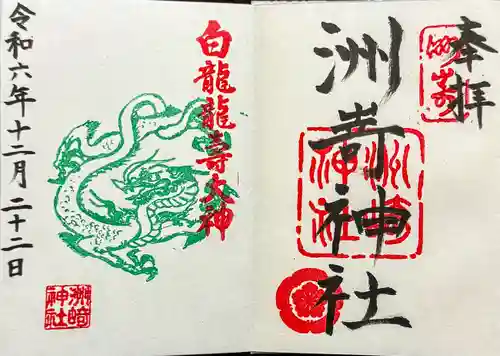 奉拝
洲嵜神社
洲崎神社
白龍龍寿大神
令和六年十二月二十二日
洲崎神社